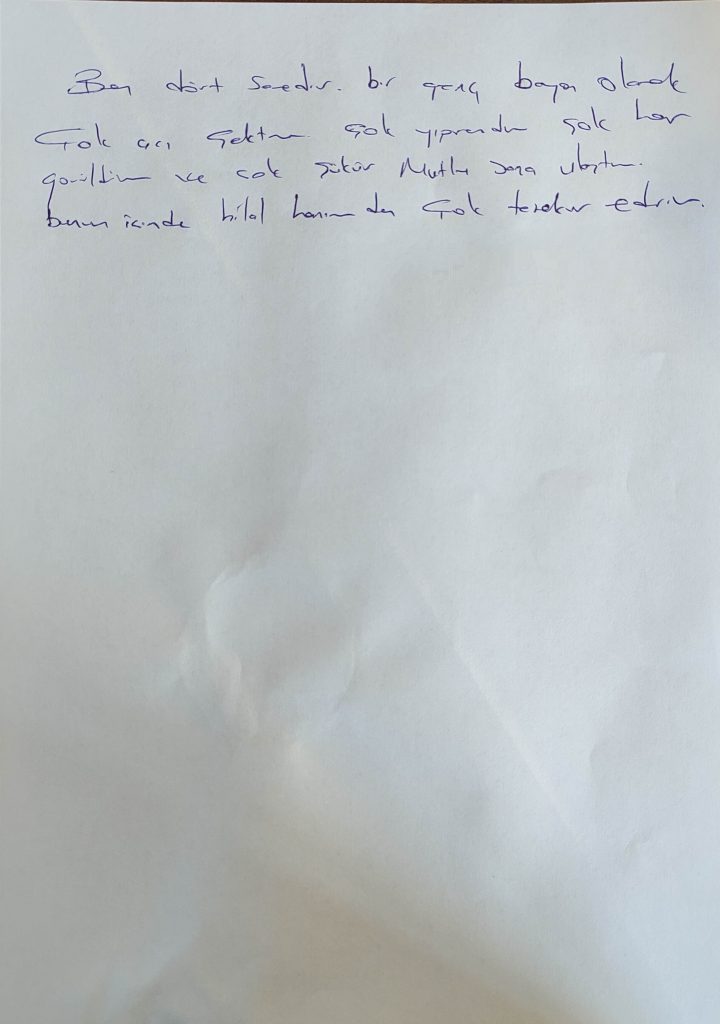 Ben dört senedir. bir genç bayan olarak
Çok acı çektim çok yıprandım çok hor
görüldüm ve çok şükür Mutlu sona ulaştım.
bunun içinde hilal hanım dan Çok teşekür ederim.